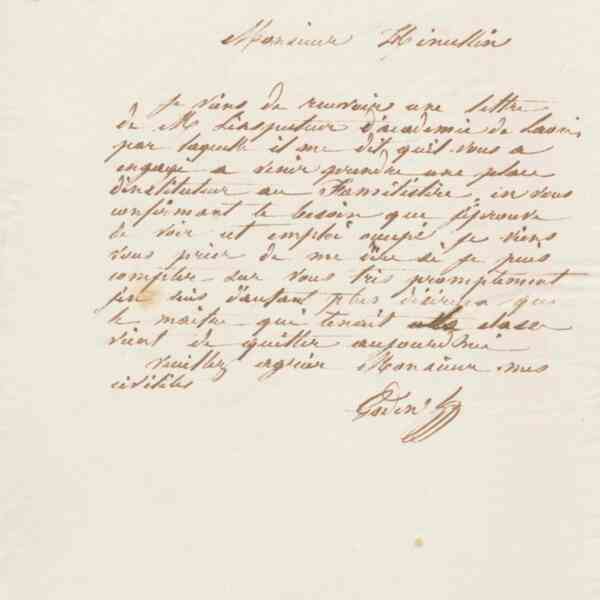 Monsieur
Je viens de recevoir une lettre
de M L'inspecteur d'académie de Laon
par laquelle il me dit qu'il vous a
engagé a venir prendre une place
d'instituteur au Familistère, en vous
confirmant le besoin que j'éprouve
de voir cet emploi occupé je viens
vous prier de me dire si je puis
compter sur vous très promptement
j'en suis d'autant plus désireux que
le maitre qui tenait classe
vient de quitter aujourd'hui
veuillez agréer Monsieur mes
civilités
Godin